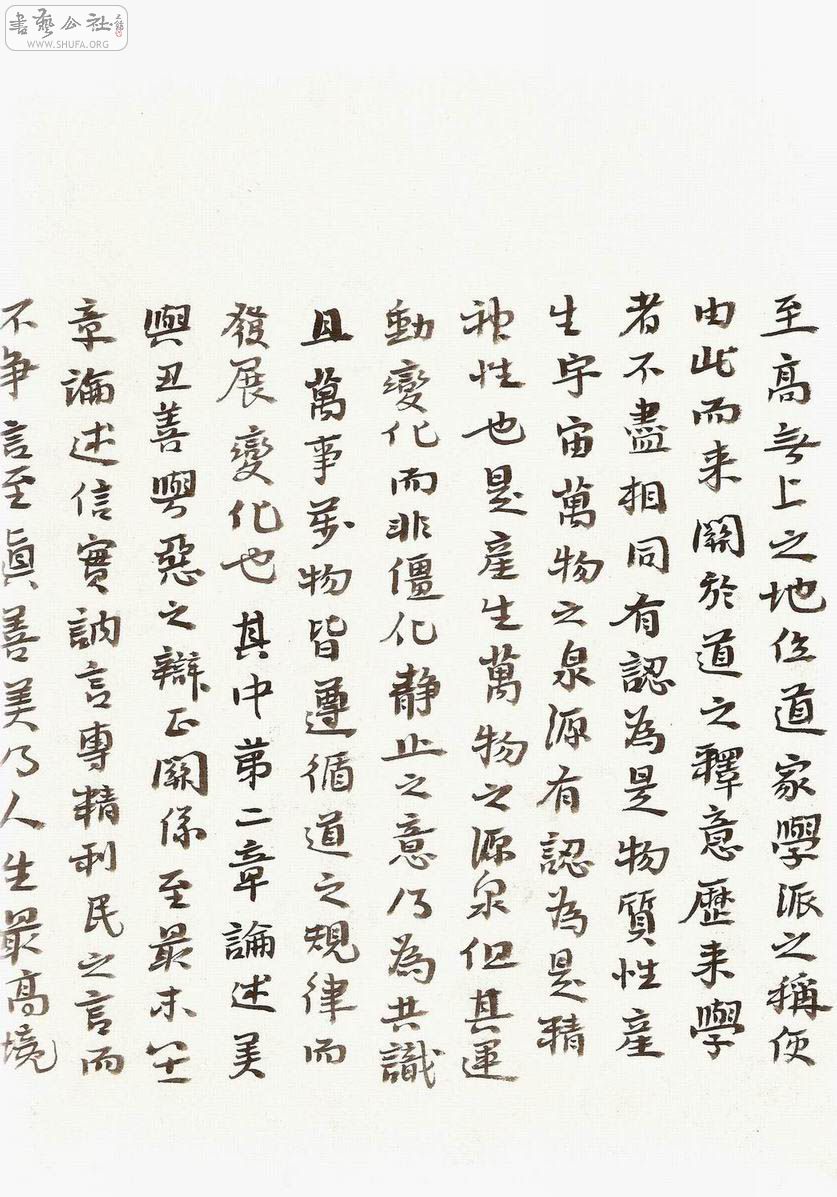 書藝公社
WWW.SHUFA.ORG
至高無上之地位道家學派之稱便
由此而来關於道之釋意歷来學
者不盡相同有認為是物質性産
生宇宙萬物之泉源有認為是精
神性也是産生萬物之源泉但其運
動變化而非僵化静止之意乃為共識
且萬事萬物皆遵循道之規律而
發展變化也其中第二章論述美
與丑善與惡之辯正關係至最末一
章論述信實訥言專精利民之言而
不争言至真善美乃人生最高境